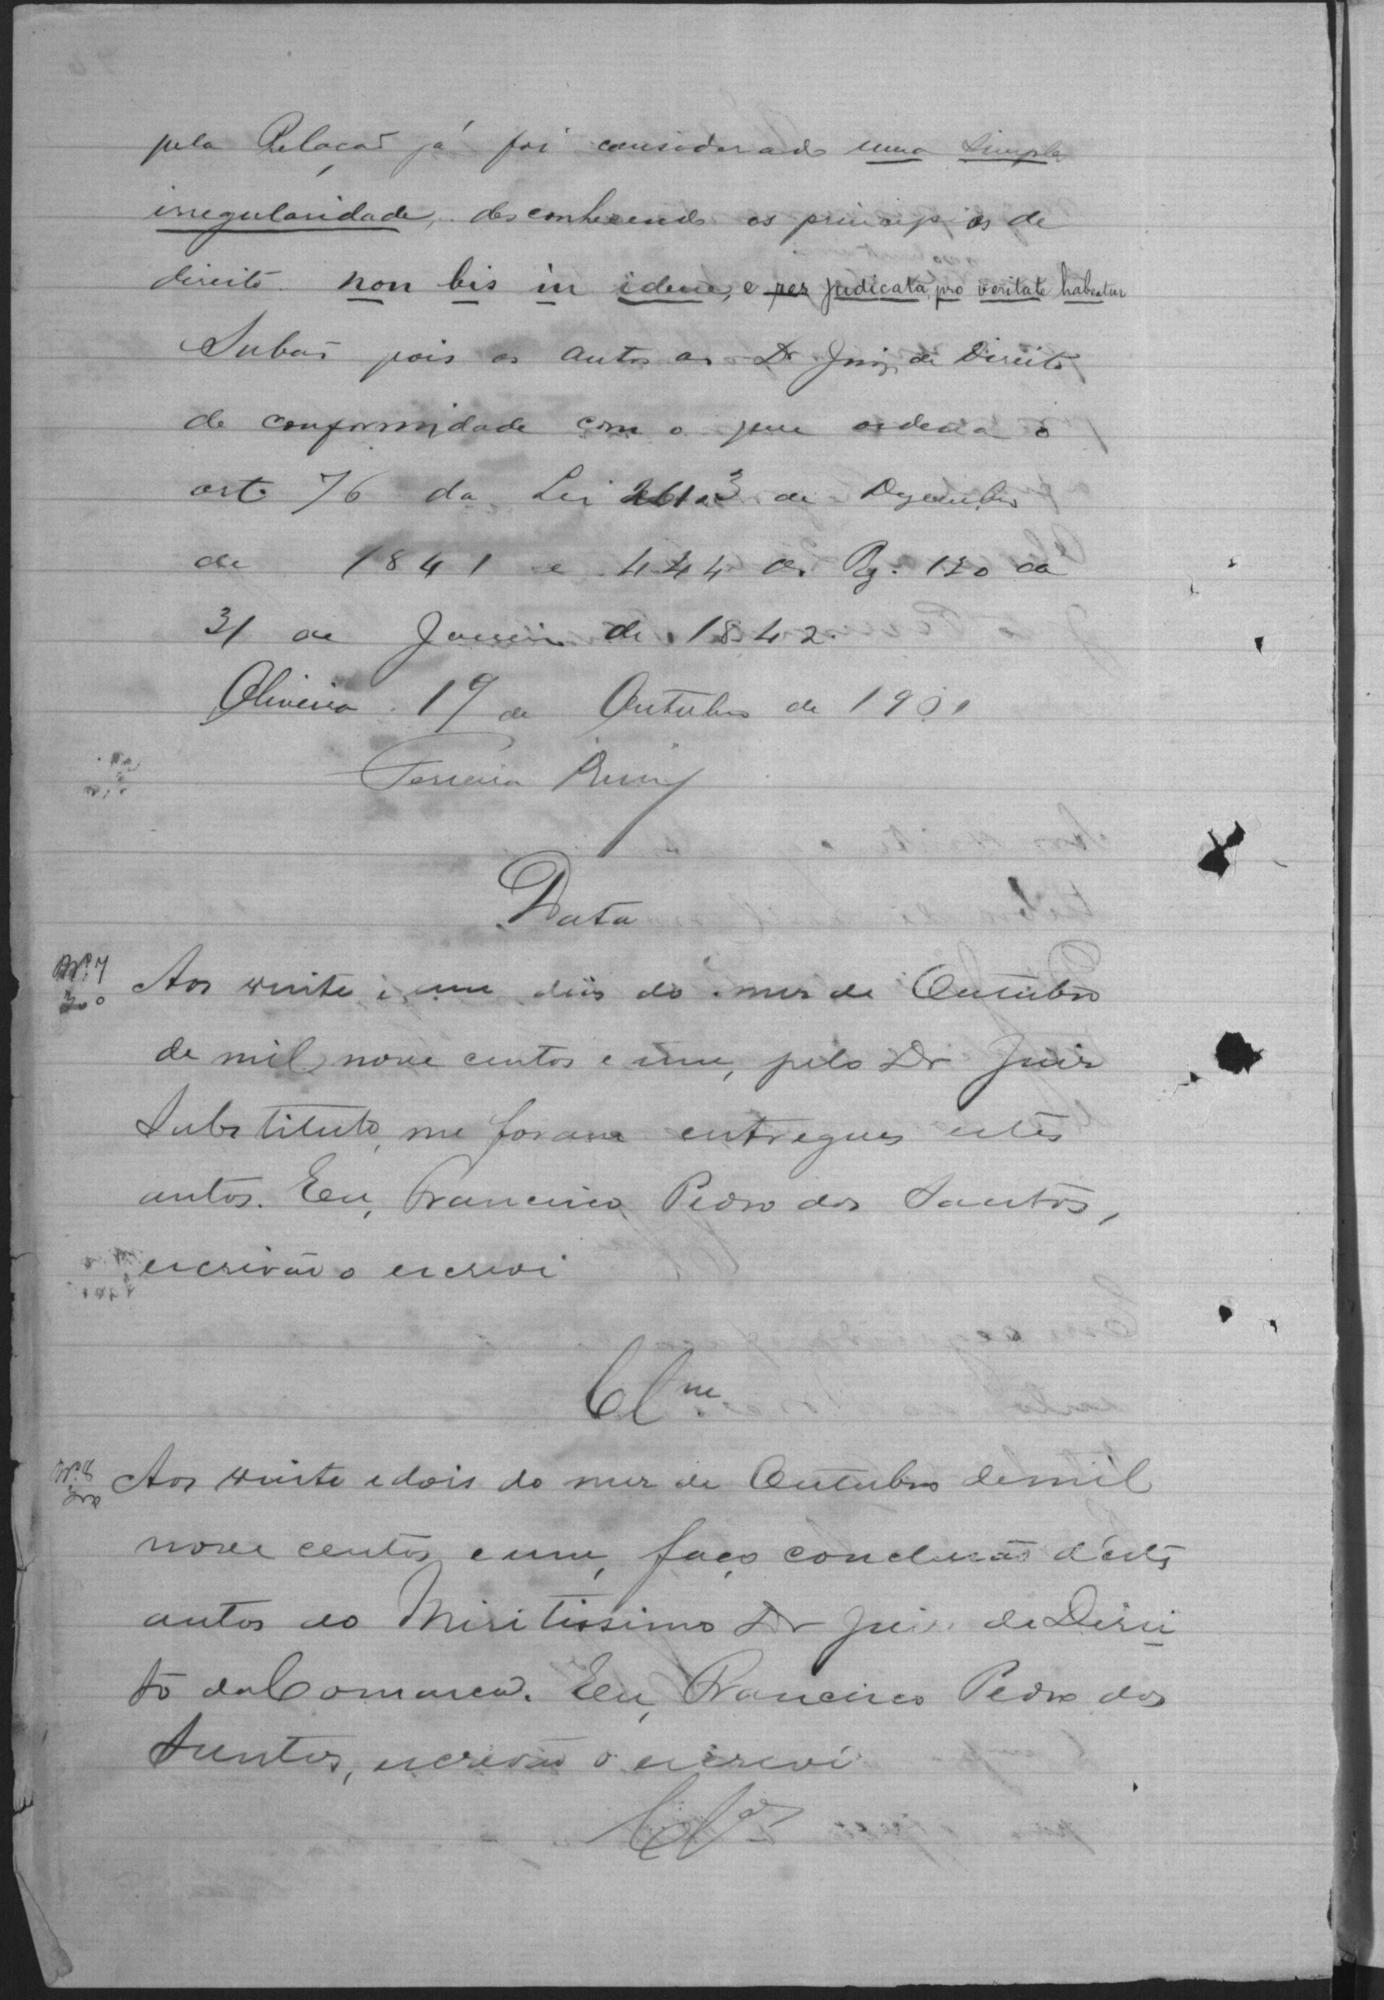 pela Relação já foi considerado uma simples
irregularidade, desconhecendo os principios de
direito non bis in idem, e res judicata pro veritate habeatur
Subaõ pois os autos ao Dr Juiz de Direito
de conformidade com o que ordena o
arto 76 da Lei 261 de 3 de Dezembro
de 1841 e 444 do Rg. 120 de
31 de Janeiro de 1842.
Oliveira 19 de Outubro de 1901
Ferreira
Data
Nº. 7
200
Aos vinte e um dias do mez de Outubro
de mil nove centos e um, pelo Dr Juiz
Substituto, me foram entregues estes
autos. Eu, Francisco Pedro dos Santos,
escrivão o escrevi
Clm
Nº. 8
200
Aos vinte e dois do mez de Outubro de mil
nove centos e um, faço conclusão d'estes
autos ao Miritissimo Dr Juiz de Direi
to da Comarca. Eu, Francisco Pedro dos
Santos, escrivão o escrevi